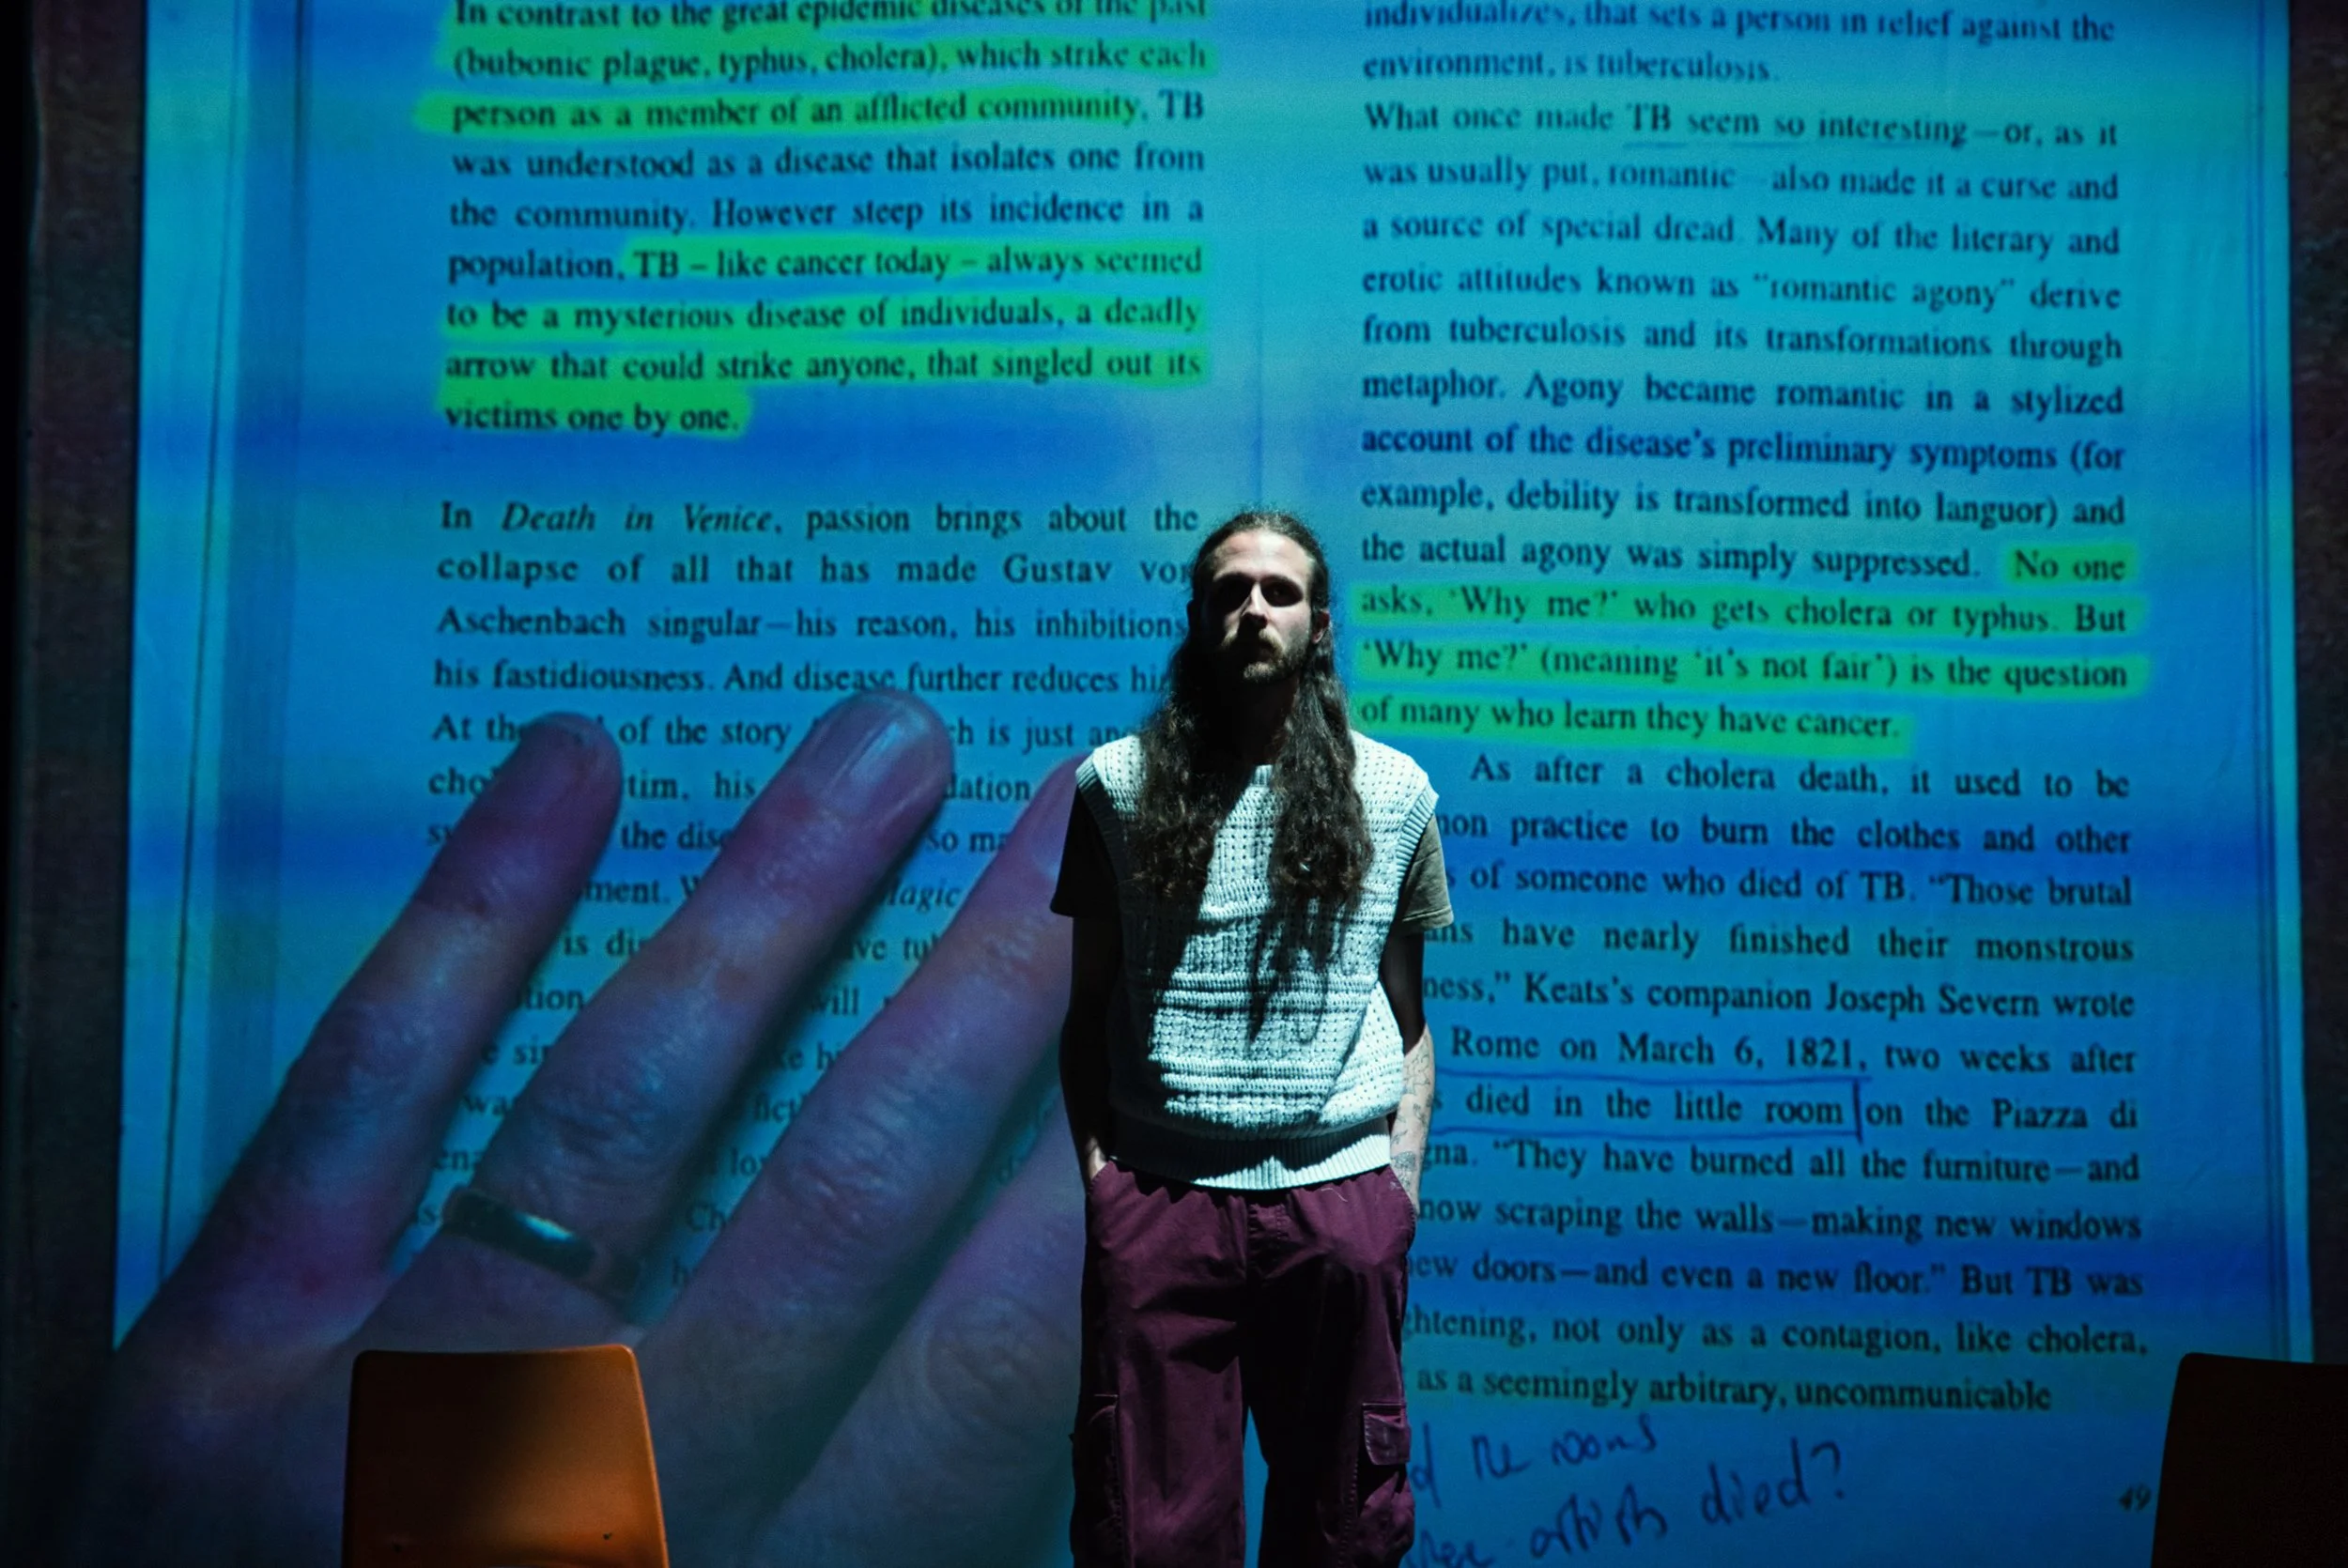 In contrast to the great epidemic diseases of the past
(bubonic plague, typhus, cholera), which strike each
person as a member of an afflicted community, TB
was understood as a disease that isolates one from
the community. However steep its incidence in a
population, TB – like cancer today – always seemed
to be a mysterious disease of individuals, a deadly
arrow that could strike anyone, that singled out its
victims one by one.
In Death in Venice, passion brings about the
collapse of all that has made Gustav
Aschenbach singular—his reason, his inhibitions
his fastidiousness. And disease further reduces
At of the story is just
his
the so
is
will
individualizes, that sets a person in relief against the
environment, is tuberculosis.
What once made TB seem so interesting—or, as it
was usually put, romantic—also made it a curse and
a source of special dread. Many of the literary and
erotic attitudes known as “romantic agony” derive
from tuberculosis and its transformations through
metaphor. Agony became romantic in a stylized
account of the disease's preliminary symptoms (for
example, debility is transformed into languor) and
the actual agony was simply suppressed. No one
asks, 'Why me?' who gets cholera or typhus. But
'Why me?' (meaning 'it's not fair') is the question
of many who learn they have cancer.
As after a cholera death, it used to be
practice to burn the clothes and other
of someone who died of TB. “Those brutal
have nearly finished their monstrous
Keats's companion Joseph Severn wrote
Rome on March 6, 1821, two weeks after
died in the little room on the Piazza di
“They have burned all the furniture—and
now scraping the walls—making new windows
doors—and even a new floor.” But TB was
not only as a contagion, like cholera,
as a seemingly arbitrary, uncommunicable
the rooms
artists died?
49